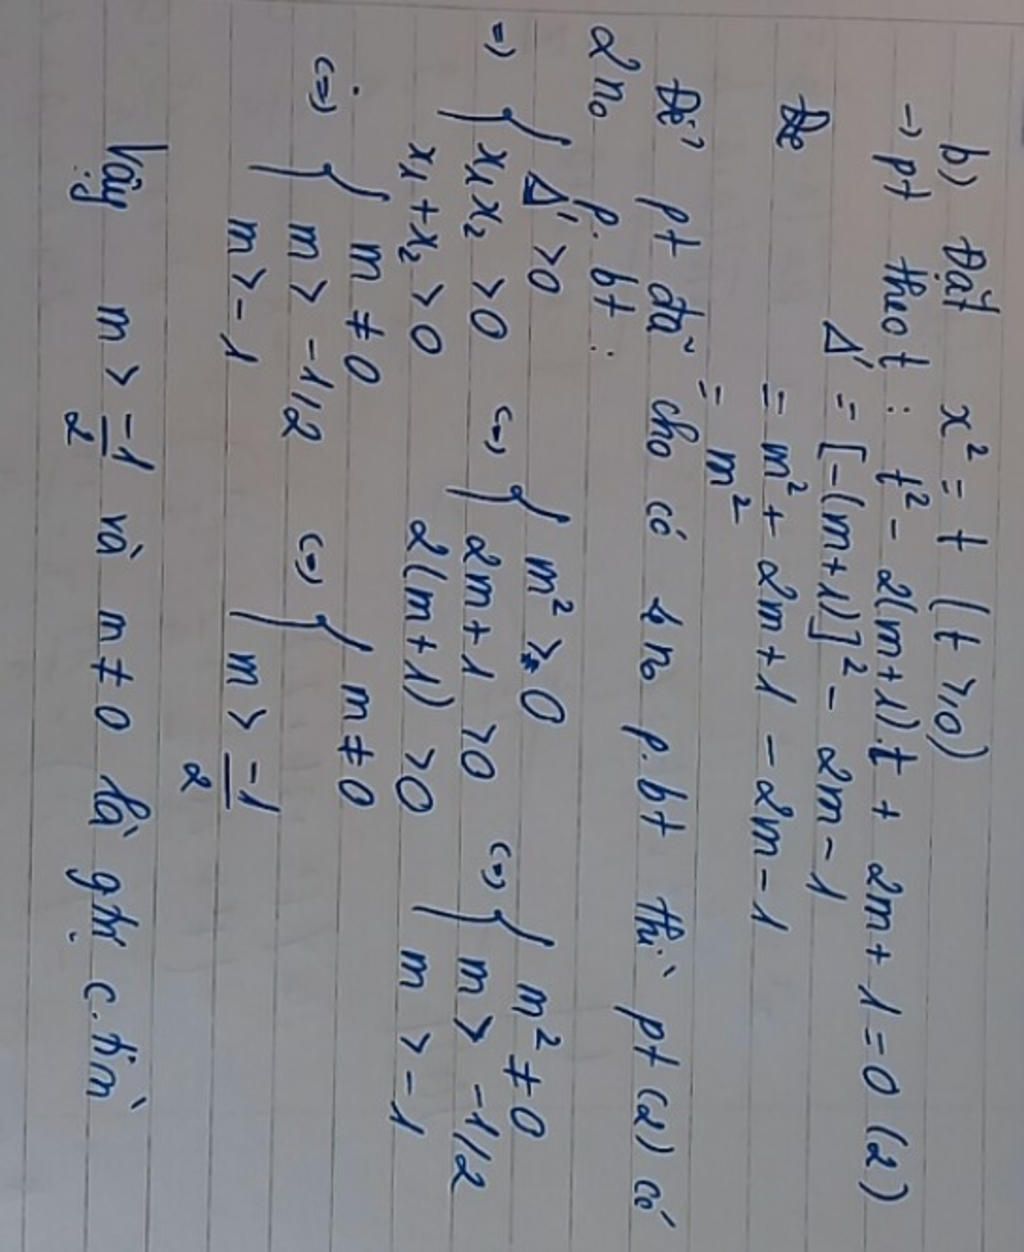 b) Đặt x² = t (t ⩾ 0)
→ pt theo t : t² - 2(m+1).t + 2m + 1 = 0 (2)
Δ' = [-(m+1)]² - 2m - 1
= m² + 2m + 1 - 2m - 1
= m²
Để pt đã cho có 4 n₀ p.bt thì pt (2) có
2 n₀ p.bt :
=> { Δ' > 0 <=> { m² > 0 <=> { m² ≠ 0
x₁x₂ > 0 2m + 1 > 0 m > -1/2
x₁ + x₂ > 0 2(m+1) > 0 m > -1
<=> { m ≠ 0 <=> { m ≠ 0
m > -1/2 m > -1/2
m > -1
Vậy m > -1/2 và m ≠ 0 là gtrị c.tìm